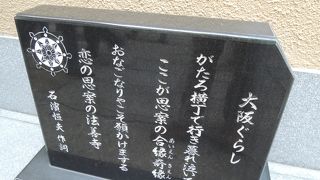 大阪ぐらし
がたろ横丁で行き暮れ泣いる
ここが思案の合縁奇縁
あいえんきえん
おなごなりやこそ願かけまする
恋の思案の法善寺
石濱恒夫 作詞